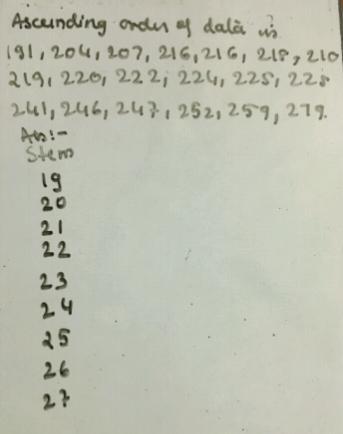 Ascending order of data is
191, 204, 207, 216, 216, 218, 210
219, 220, 222, 224, 225, 228
241, 246, 247, 252, 259, 279.
Ans:-
Stem
19
20
21
22
23
24
25
26
27